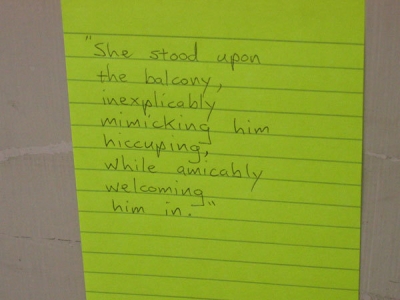 "She stood upon
the balcony,
inexplicably
mimicking him
hiccuping,
while amicably
welcoming
him in."